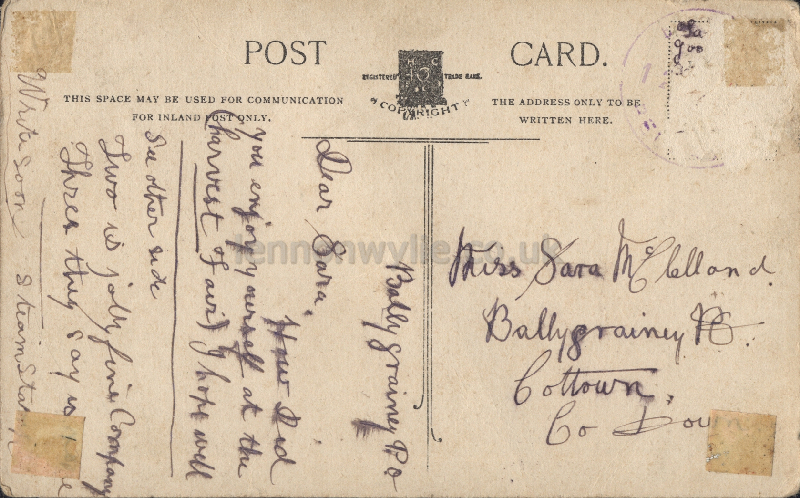 POST CARD.
H S C
REGISTERED TRADE MARK.
COPYRIGHT
THIS SPACE MAY BE USED FOR COMMUNICATION
FOR INLAND POST ONLY.
THE ADDRESS ONLY TO BE
WRITTEN HERE.
Ballygrainey P.O
Dear Sara,
How Did
you enjoy yourself at the
(harvest Fair) I hope well
See other side
Two is jolly fine Company
Three they say is
Write soon Steam
Miss Sara McClelland.
Ballygrainey P.O.
Cottown.
Co Down
lennonwylie.co.uk